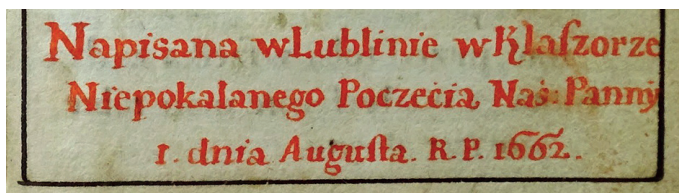 Napisana wLublinie wKlaſzorze
Niepokalanego Poczećia Naś: Panny
1. dnia Auguſta. R. P. 1662.